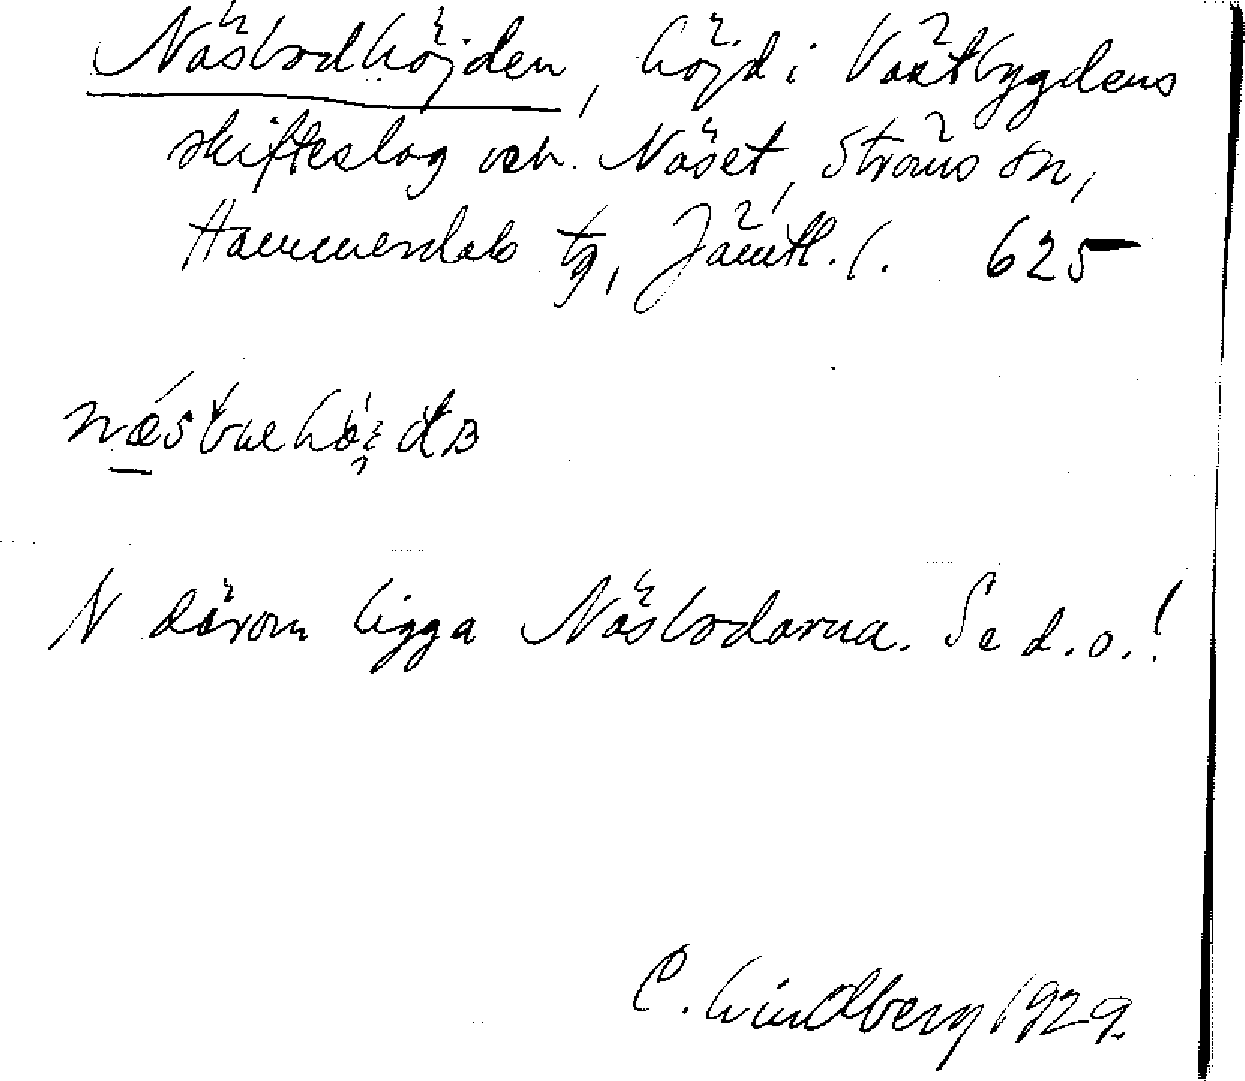 Näsbodhöjden, höjd i Västbygdens
skifteslag och Näset, Ströms sn,
Hammerdals tg, Jämtl. l. 625
N därom ligga Näsbodarna. Se d.o.!
C. Lindberg 1929